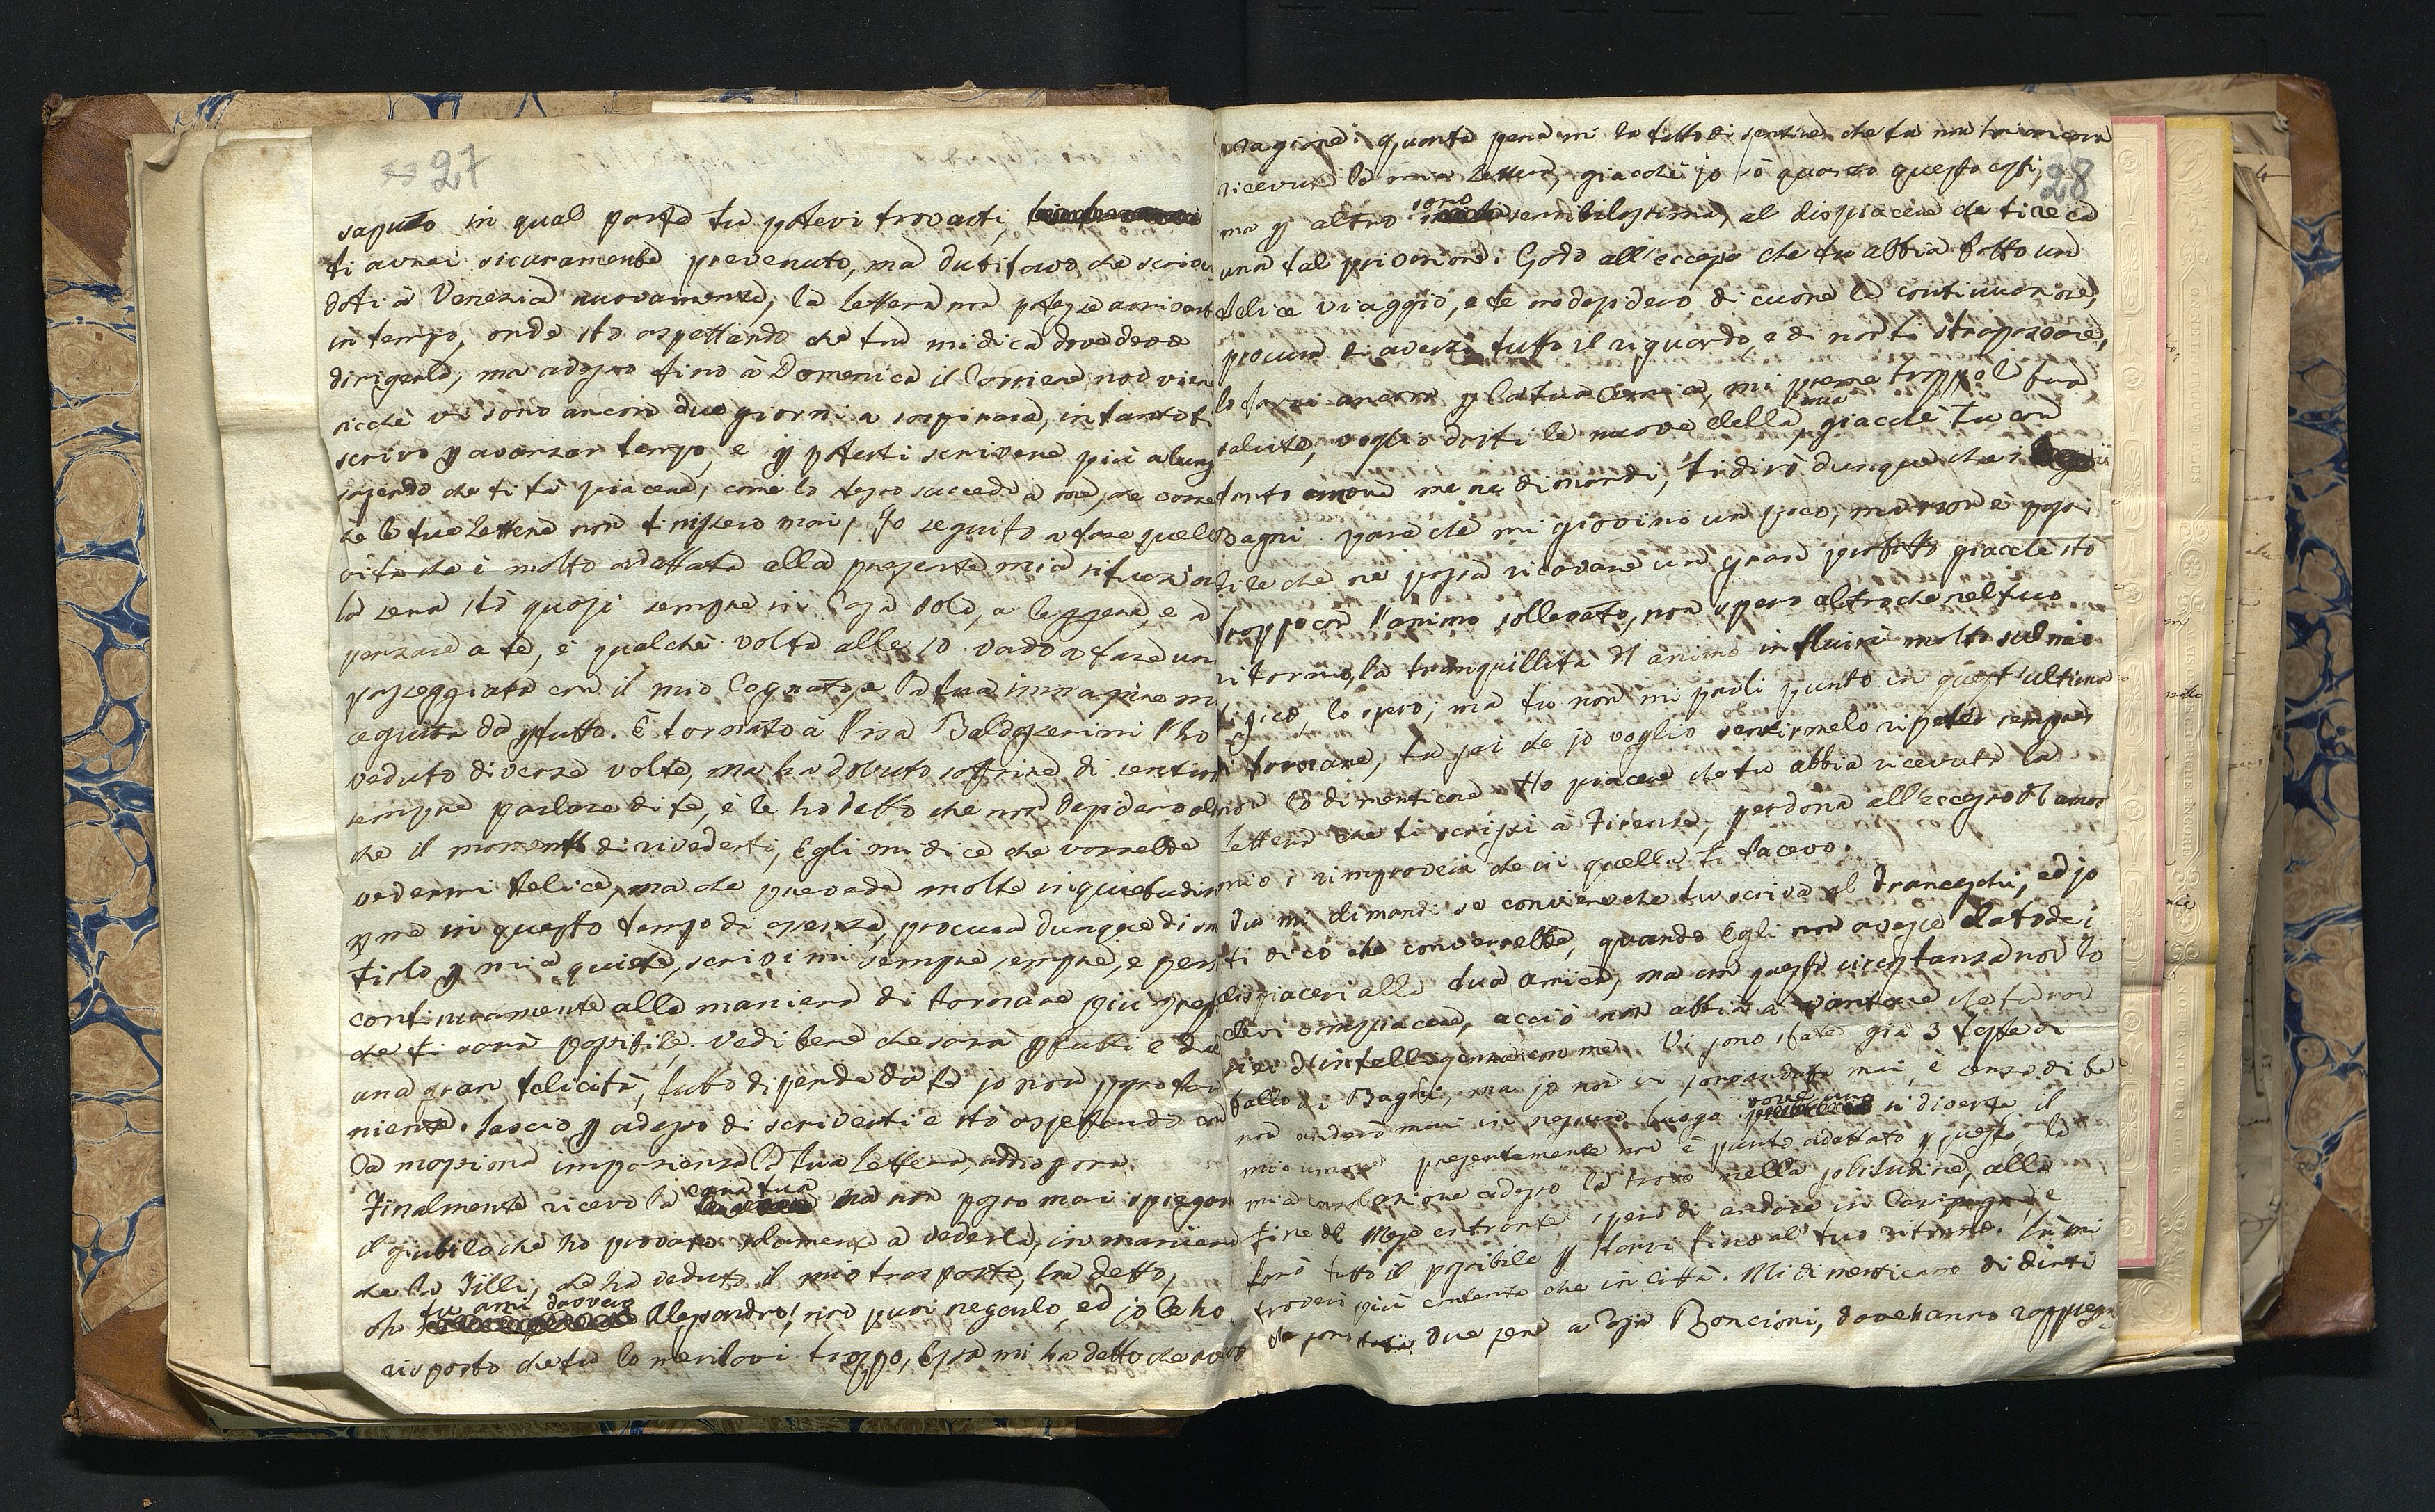 27
saputo in qual parte tu potevi trovarti,
ti avrei sicuramente prevenuto, ma dubitavo che scriven
doti à Venezia nuovamente, la lettera non potesse arrivarti
in tempo, onde stò aspettando che tu mi dica dove devo
dirigerla, ma adesso fino à Domenica il Corriere non vien
sicchè vi sono ancora due giorni a sospirare, intanto ti
scrivo p avanzar tempo, e p poterti scrivere più a lung
sapendo che ti fà piacere, come lo stesso succede a me, che vorre
le tue lettere non finissero mai, Jo seguito a fare quell
vita che è molto adattata alla presente mia situazion
la sera stò quasi sempre in Casa sola, a leggere, e à
pensare a te, è qualche volta alle 10 vado a fare un
passeggiata con il mio Cognato, e la tua immagine m
seguita da p tutto. È tornato à Pisa Baldasserini l'ho
veduto diverse volte, ma ha dovuto soffrire di sentirmi
sempre parlare di te, è le ho detto che non desidero al
che il momento di rivederti, Egli mi dice che vorrebbe
vedermi felice, ma che prevede molte inquietudini
p me in questo tempo di assenza, procura dunque di
p mia quiete, scrivimi sempre sempre, e pensa
continuamente alla maniera di tornare più presto
che ti sarà possibile. Vedi bene che sarà p tutti e due
una gran felicità, tutto dipende da te jo non posso far
niente. Lascio p adesso di scriverti e stò aspettando con
la massima impazienza la tua lettera, addio p ora.
Finalmente ricevo la cara tua ma non posso mai spiegar
il giubilo che ho provato solamente a vederla, in maniera
che la Tilli, che ha veduto il mio trasporto, ha detto,
oh tu ami davvero Alessandro! non puoi negarlo, ed jo le ho
risposto che tu lo meritavi troppo, Essa mi ha detto che avevo
28
ragione; quanta pena mi ha fatto di sentire che tu non hai ancora
ricevuta la mia lettera, giacchè jo sò quanto questo costi,
ma p altro sono sensibilissima, al dispiacere che ti reca
una tal privazione. Godo all'eccesso che tu abbia fatto un
felice viaggio, e te ne desidero di cuore la continuazione,
procura di averti tutto il riguardo, e di non ti strapazzare,
lo farai ancora p la tua Amica, mi preme troppo la tua
salute, voglio darti le nuove della mia giacchè tu con
tanto amore me ne dimandi, ti dirò dunque che i
Bagni pare che mi giovino un poco, ma non è possi
bile che ne possa ricavare un gran profitto giacchè stò
troppo con l'animo sollevato, non spero altro che nel tuo
ritorno, la tranquillità d'animo influirà molto sul mio
fisico, lo spero; ma tu non mi parli punto in quest'ultima
di tornare, tu sai che jo voglio sentirmelo ripeter sempre
non lo dimenticare. Ho piacere che tu abbia ricevuta la
lettera che ti scrissi à Firenze, perdona all'eccesso d'amor
mio i rimproveri che in quella ti facevo.
Tu mi dimandi se conviene che tu scriva al Franceschi, ed jo
ti dico che converrebbe, quando Egli non avesse dato dei
dispiaceri alla tua amica, ma in questa circostanza non lo
devi compiacere, acciò non abbia a vantare che tu non
sei d'intelligenza con me. Vi sono state già 3 feste di
ballo ai Bagni, ma jo non vi sono andata mai, è senza di te
non anderò mai in nessun luogo dove uno si diverta il
mio umore presentemente non è punto adattato p questo, la
mia consolazione adesso la trovo nella solitudine, alla
fine del Mese entrante, spero di andare in Campagna, e
farò tutto il possibile p starvi fino al tuo ritorno. Là mi
troverò più contenta che in Città. Mi dimenticavo di dirti
che sono stata due sere a Casa Boncioni, dove hanno rappresen